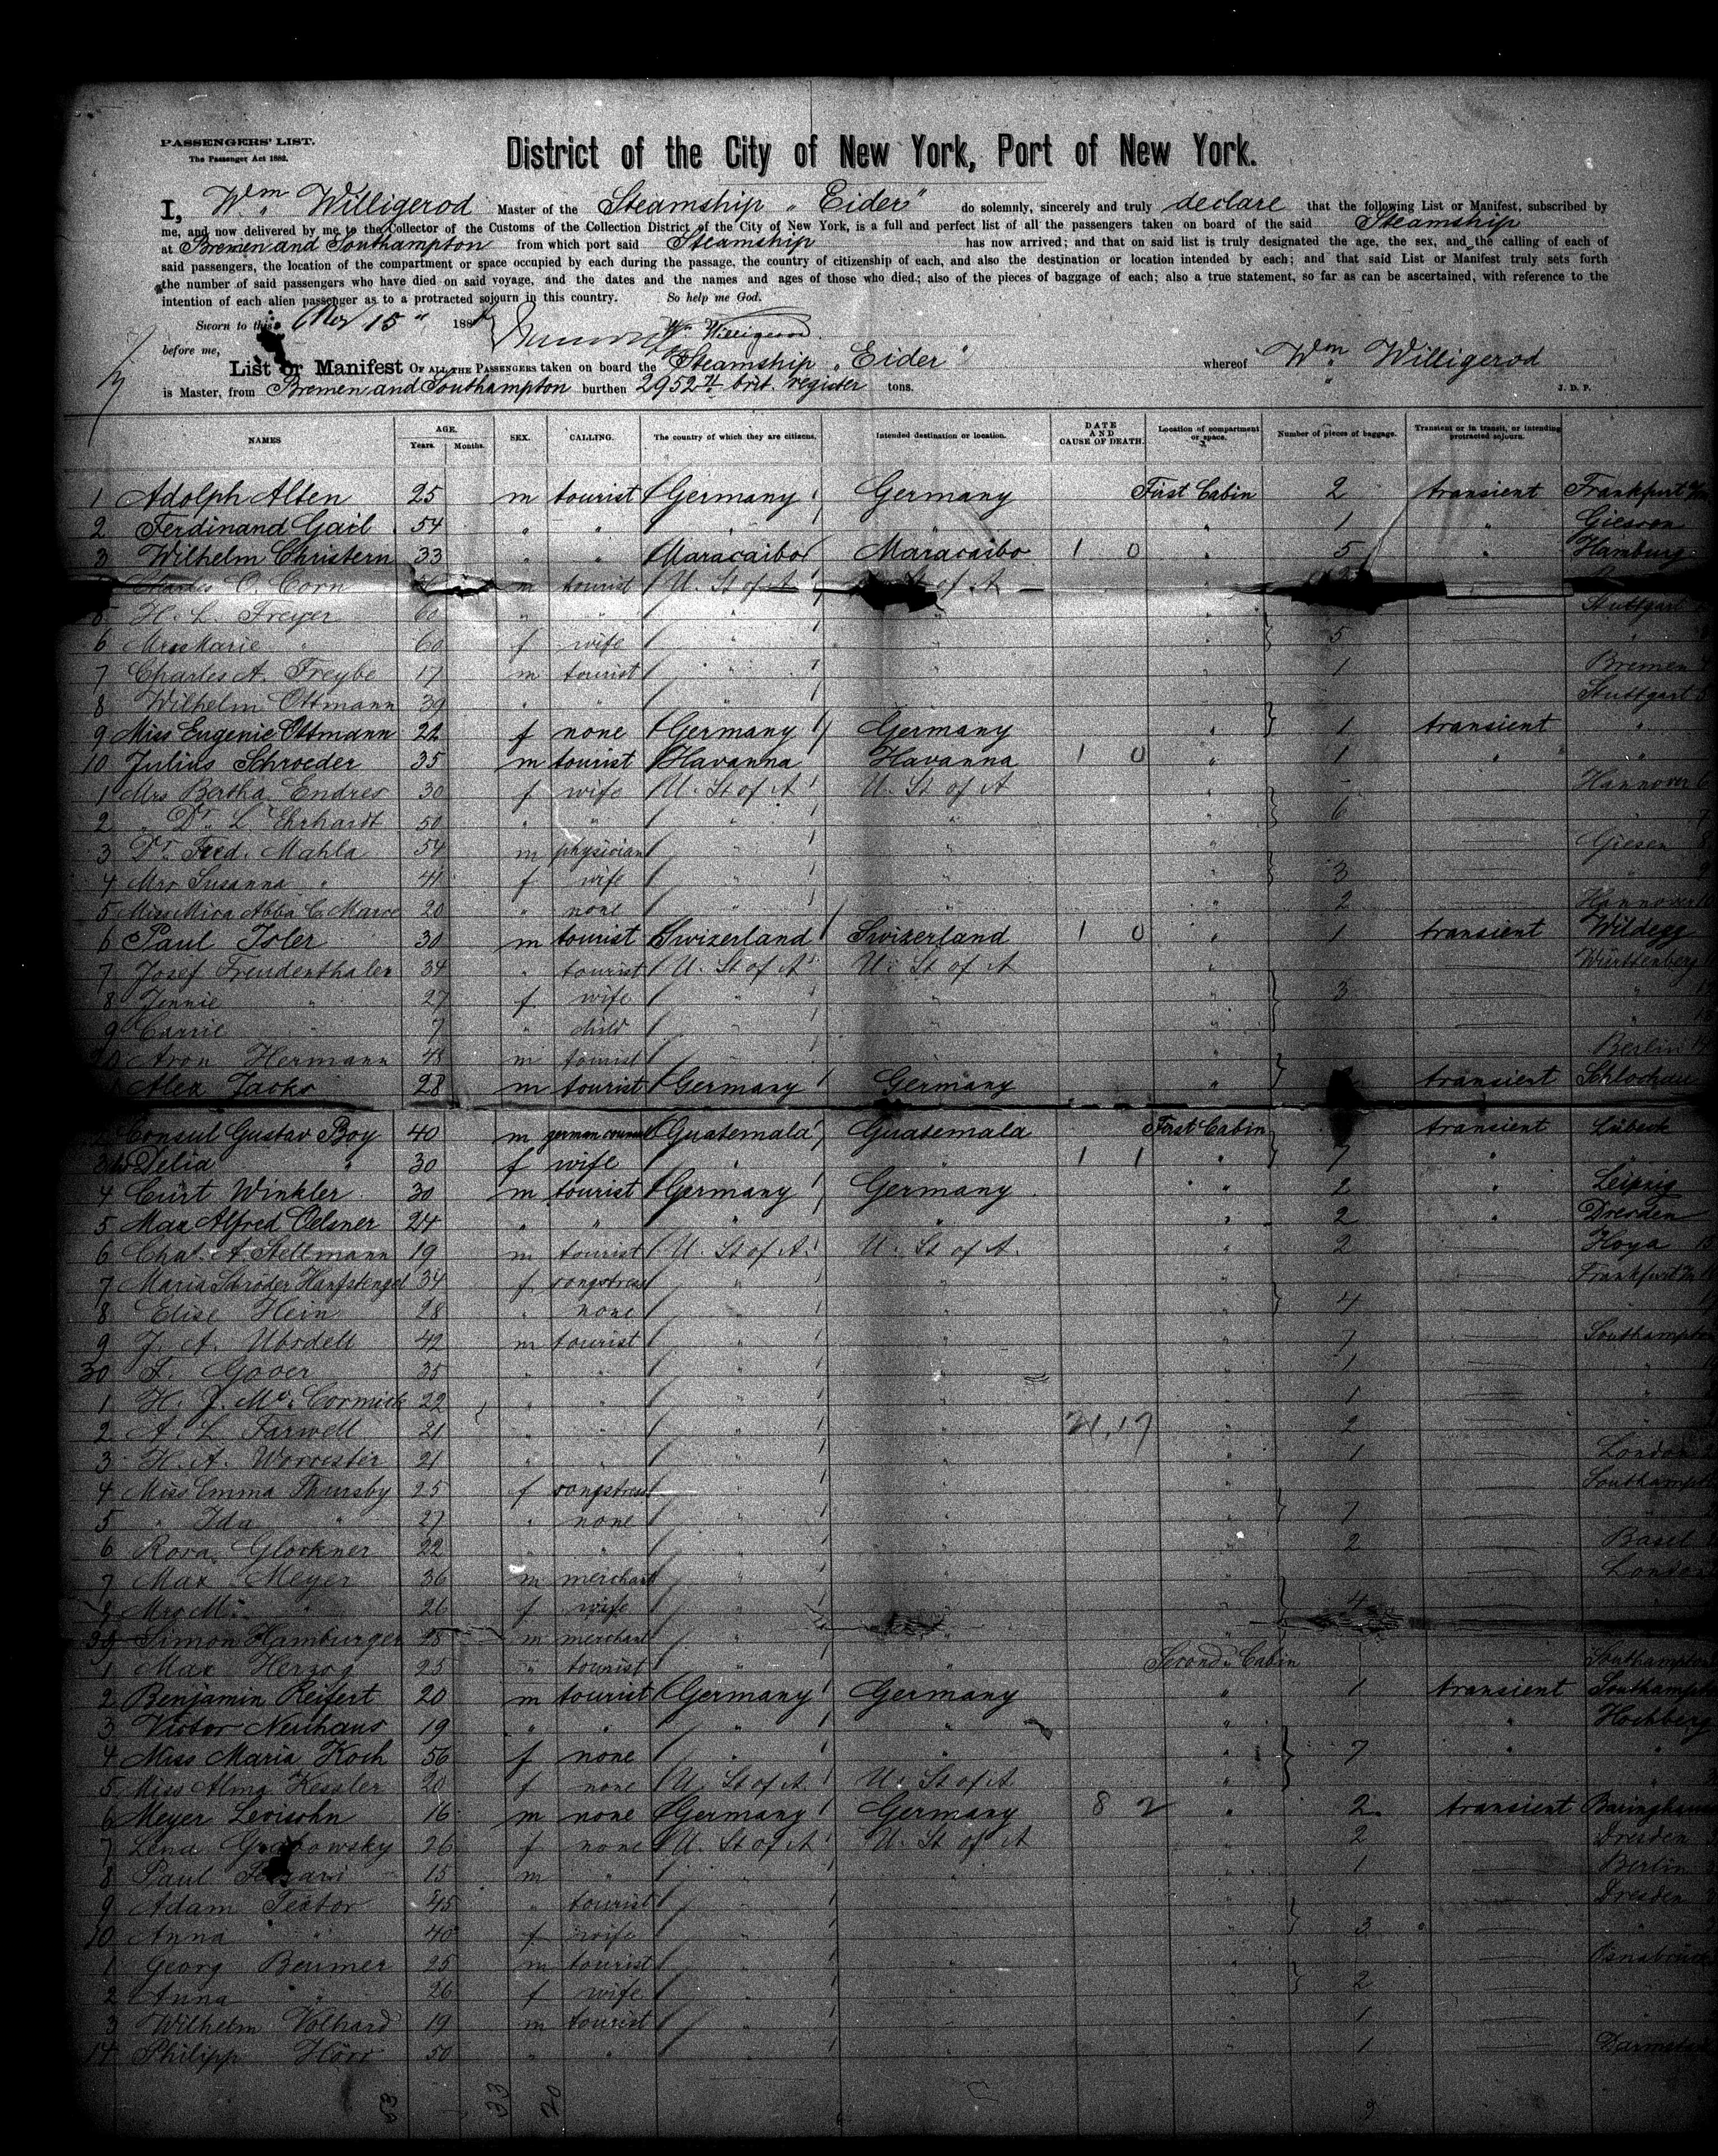 PASSENGERS' LIST.
The Passenger Act 1882.
District of the City of New York, Port of New York.
I, Wm Willigerod Master of the Steamship "Eider" do solemnly, sincerely and truly declare that the following List or Manifest, subscribed by
me, and now delivered by me to the Collector of the Customs of the Collection District of the City of New York, is a full and perfect list of all the passengers taken on board of the said Steamship
at Bremen and Southampton from which port said Steamship has now arrived; and that on said list is truly designated the age, the sex, and the calling of each of
said passengers, the location of the compartment or space occupied by each during the passage, the country of citizenship of each, and also the destination or location intended by each; and that said List or Manifest truly sets forth
the number of said passengers who have died on said voyage, and the dates and the names and ages of those who died; also of the pieces of baggage of each; also a true statement, so far as can be ascertained, with reference to the
intention of each alien passenger as to a protracted sojourn in this country. So help me God.
Sworn to this Nov 15 188 Wm Willigerod
before me,
List or Manifest OF ALL THE PASSENGERS taken on board the Steamship "Eider" whereof Wm Willigerod
is Master, from Bremen and Southampton burthen 2952 brit. register tons. J. D. P.
NAMES AGE. Years. Months. SEX. CALLING. The country of which they are citizens. Intended destination or location. DATE AND CAUSE OF DEATH. Location of compartment or space. Number of pieces of baggage. Transient or in transit, or intending protracted sojourn.
1 Adolph Alten 25 m tourist Germany Germany First Cabin 2 transient Frankfurt
2 Ferdinand Gail 54 " " " " " 1 " Giessen
3 Wilhelm Christern 33 " " Maracaibo Maracaibo 1 0 " 5 " Hamburg
Charles O. Corn m tourist U. St of A St of A
5 H. L. Freyer 60 " " " " " Stuttgart
6 Mrs Marie " 60 f wife " " " 5 "
7 Charles A. Freybe 17 m tourist " " " 1 Bremen
8 Wilhelm Ottmann 39 " " " " " Stuttgart
9 Miss Eugenie Ottmann 22 f none Germany Germany " 1 transient "
10 Julius Schroeder 35 m tourist Havanna Havanna 1 0 " 1 " "
1 Mrs Bertha Endres 30 f wife U. St of A U. St of A " - Hannover
2 " Dr. L. Ehrhardt 50 " " " " " 6
3 Dr. Fred. Mahla 54 m physician " " " Giesen
4 Mrs Susanna " 41 f wife " " " 3 "
5 Miss Mira Abba C. 20 " none " " " 2 Hannover
6 Paul Isler 30 m tourist Swizerland Swizerland 1 0 " 1 transient Wildegg
7 Josef Freudenthaler 34 " tourist U. St of A U. St of A " Württenberg
8 Jennie " 27 f wife " " " 3 "
9 Carrie " 7 " child " " " "
20 Aron Hermann 48 m tourist " " " Berlin
Alex Jacks 28 m tourist Germany Germany " transient Schlochau
Consul Gustav Boy 40 m german consul Guatemala Guatemala First Cabin transient Lübeck
3 Delia " 30 f wife " " 1 1 " 7 " "
4 Curt Winkler 30 m tourist Germany Germany " 2 " Leipzig
5 Max Alfred Oelsner 24 " " " " " 2 " Dresden
6 Chas. A Stellmann 19 m tourist U. St of A. U. St of A. " 2 Hoya
7 Maria Schröder Hanfstengel 34 f songstress " " " Frankfurt
8 Elise Hein 28 " none " " " 4 "
9 J. A. Ubsdell 42 m tourist " " " 7 Southampton
30 F. Gover 35 " " " " " 1 "
1 H. J. Mc. Cormick 22 " " " " " 1 "
2 A. L. Farwell 21 " " " " 21.17 " 2 "
3 H. A. Worcester 21 " " " " " 1 London
4 Miss Emma Thursby 25 f songstress " " " Southampton
5 " Ida " 27 " none " " " 7 "
6 Rosa Glockner 22 " " " " " 2 Basel
7 Max Meyer 36 m merchant " " " London
8 Mrs M. " 26 f wife " " " 4
39 Simon Hamburger 28 m merchant " "
1 Max Herzog 25 " tourist " " Second Cabin Southampton
2 Benjamin Reifert 20 m tourist Germany Germany " 1 transient Southampton
3 Victor Neuhaus 19 " " " " " " Hochberg
4 Miss Maria Koch 56 f none " " " 7 " "
5 Miss Alma Kessler 20 f none U. St of A U. St of A " "
6 Meyer Levisohn 16 m none Germany Germany 8 2 " 2 transient Baringhausen
7 Lena Grabowsky 26 f none U. St of A U. St of A " 2 Dresden
8 Paul 15 m " " " " 1 Berlin
9 Adam Textor 45 " tourist " " " Dresden
10 Anna " 40 f wife " " " 3 "
1 Georg Beumer 25 m tourist " " " Osnabrück
2 Anna " 26 f wife " " " 2
3 Wilhelm Volhard 19 m tourist " " " 1
14 Philipp Hörr 50 " " " " " 1 Darmstadt
53 33 20 9